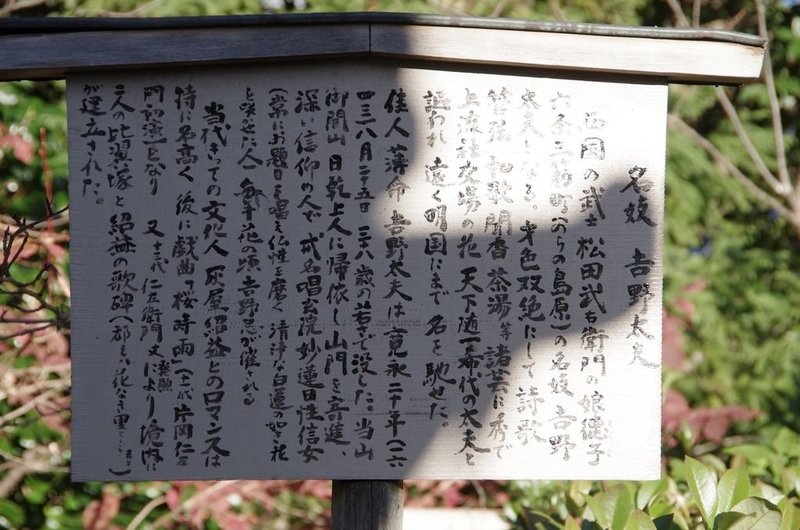 名妓 吉野太夫
西国の武士 松田武右衛門の娘徳子
六条三筋町(のちの島原)の名妓 吉野
太夫となる。才色双絶にして 詩歌
管弦 和歌 聞香 茶湯等諸芸に秀で
上流社交場の花 天下随一希代の太夫と
謳われ 遠く明国にまで 名を馳せた。
佳人薄命 吉野太夫は(寛永二十年(一六
四三)八月二十五日 三十八歳の若さで没した。当山
御開山 日乾上人に帰依し 山門を寄進、
深い信仰の人で 戒名唱玄院妙蓮日性信女
(常にお題目を唱え仏性を磨く 清浄な白蓮の如き花
と咲かせた人) 毎年花の頃 吉野忌が催される
当代きっての文化人 灰屋紹益とのロマンスは
特に名高く 後に戯曲「桜時雨」(十一代 片岡仁左
門初演)となり 又 十三代 仁左衛門丈発願により 境内に
二人の比翼塚と紹益の歌碑(都をば 花なき里と)
が建立された。